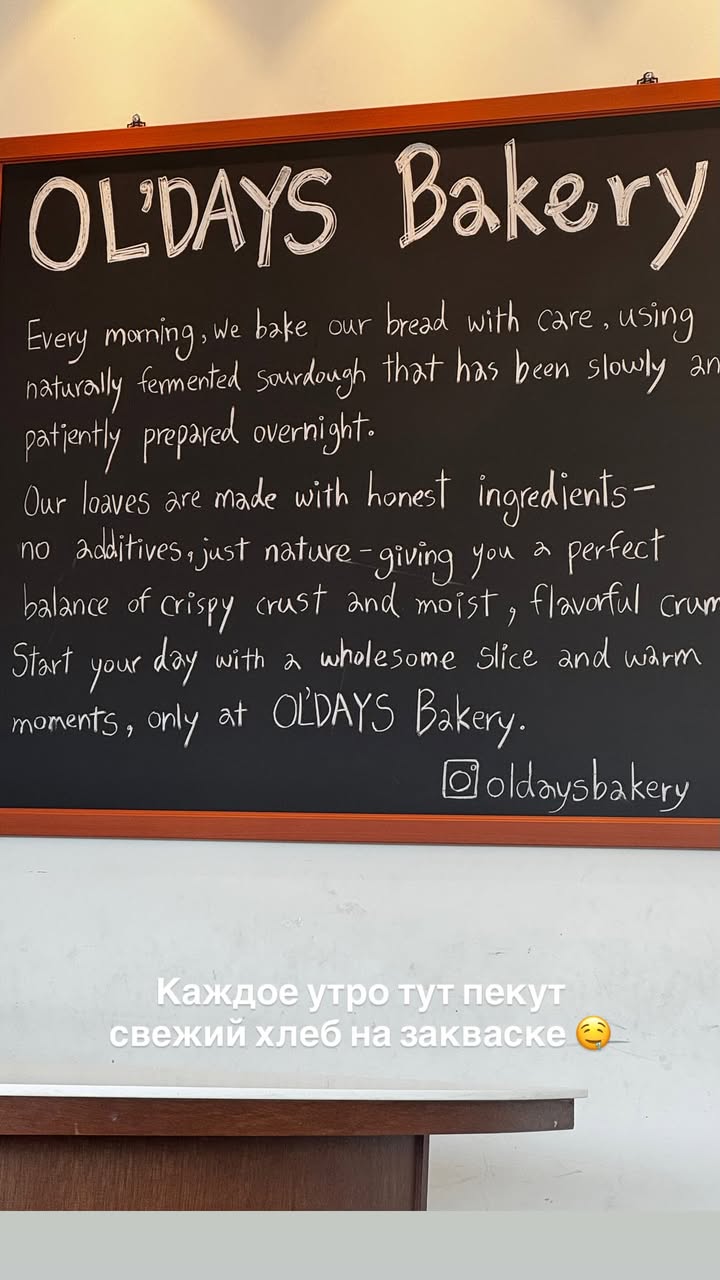 OL'DAYS Bakery
Every morning, we bake our bread with care, using
naturally fermented sourdough that has been slowly an
patiently prepared overnight.
Our loaves are made with honest ingredients–
no additives, just nature – giving you a perfect
balance of crispy crust and moist, flavorful crum
Start your day with a wholesome slice and warm
moments, only at OL'DAYS Bakery.
oldaysbakery
Каждое утро тут пекут
свежий хлеб на закваске 🤤